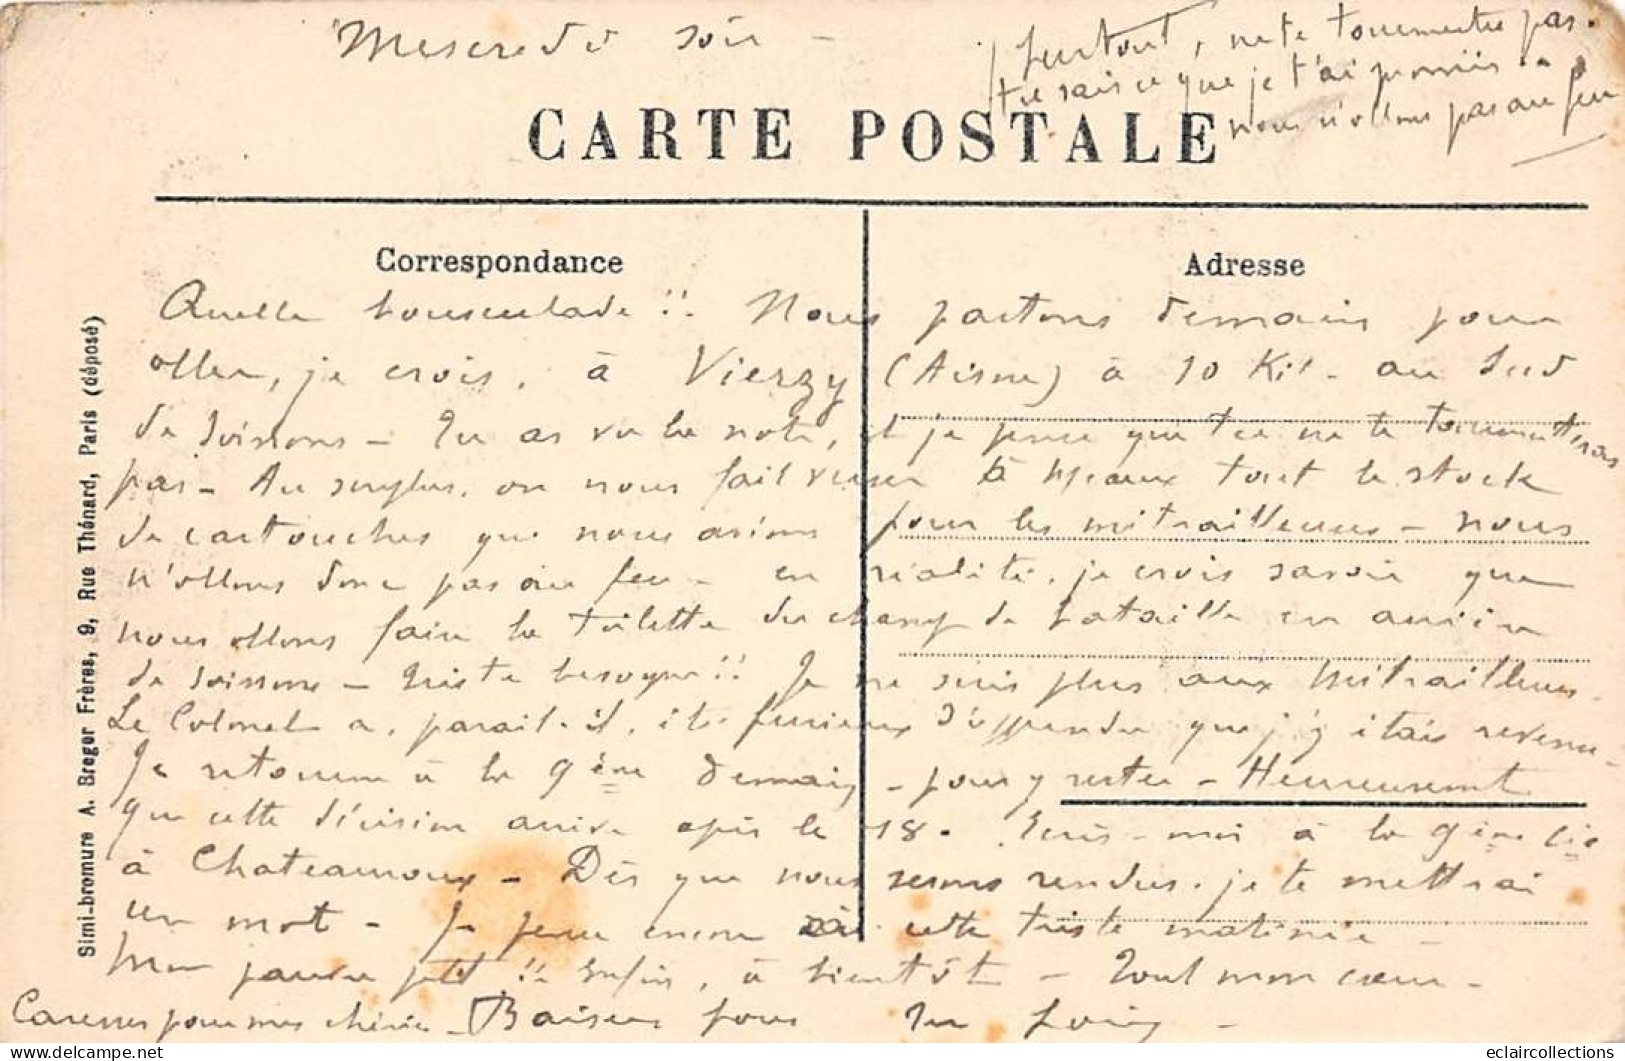 Mercredi soir -
Surtout, ne te tourmente pas.
tu sais ce que je t'ai promis ..
nous n'allons pas au feu
CARTE POSTALE
Correspondance
Adresse
Quelle bousculade !! Nous partons demain pour
aller, je crois, à Vierzy (Aisne) à 10 Kil. au Sud
de Soissons - Tu as vu la note, et je pense que tu ne te tourmenteras
pas - Au surplus, on nous fait verser à Meaux tout le stock
de cartouches que nous avions pour les mitrailleuses - nous
n'allons donc pas au feu - en réalité, je crois savoir que
nous allons faire la toilette du champ de bataille en arrière
de Soissons - Triste besogne !! Je ne suis plus aux Mitrailleuses.
Le Colonel a, parait-il, été furieux d'apprendre que j'y étais revenu.
Je retourne à la 9ème demain - pour y rester - Heureusement
que cette décision arrive après le 18. Ecris-moi à la 9ème Cie
à Chateauroux - Dès que nous serons rendus, je te mettrai
un mot - Je pense encore à cette triste matinée -
Mon pauvre petit !! Enfin, à bientôt - Tout mon cœur -
Caresses pour mes chéris - Baisers pour Ton Louis -
Simi-bromure A. Breger Frères, 9, Rue Thénard, Paris (déposé)
eclaircollections